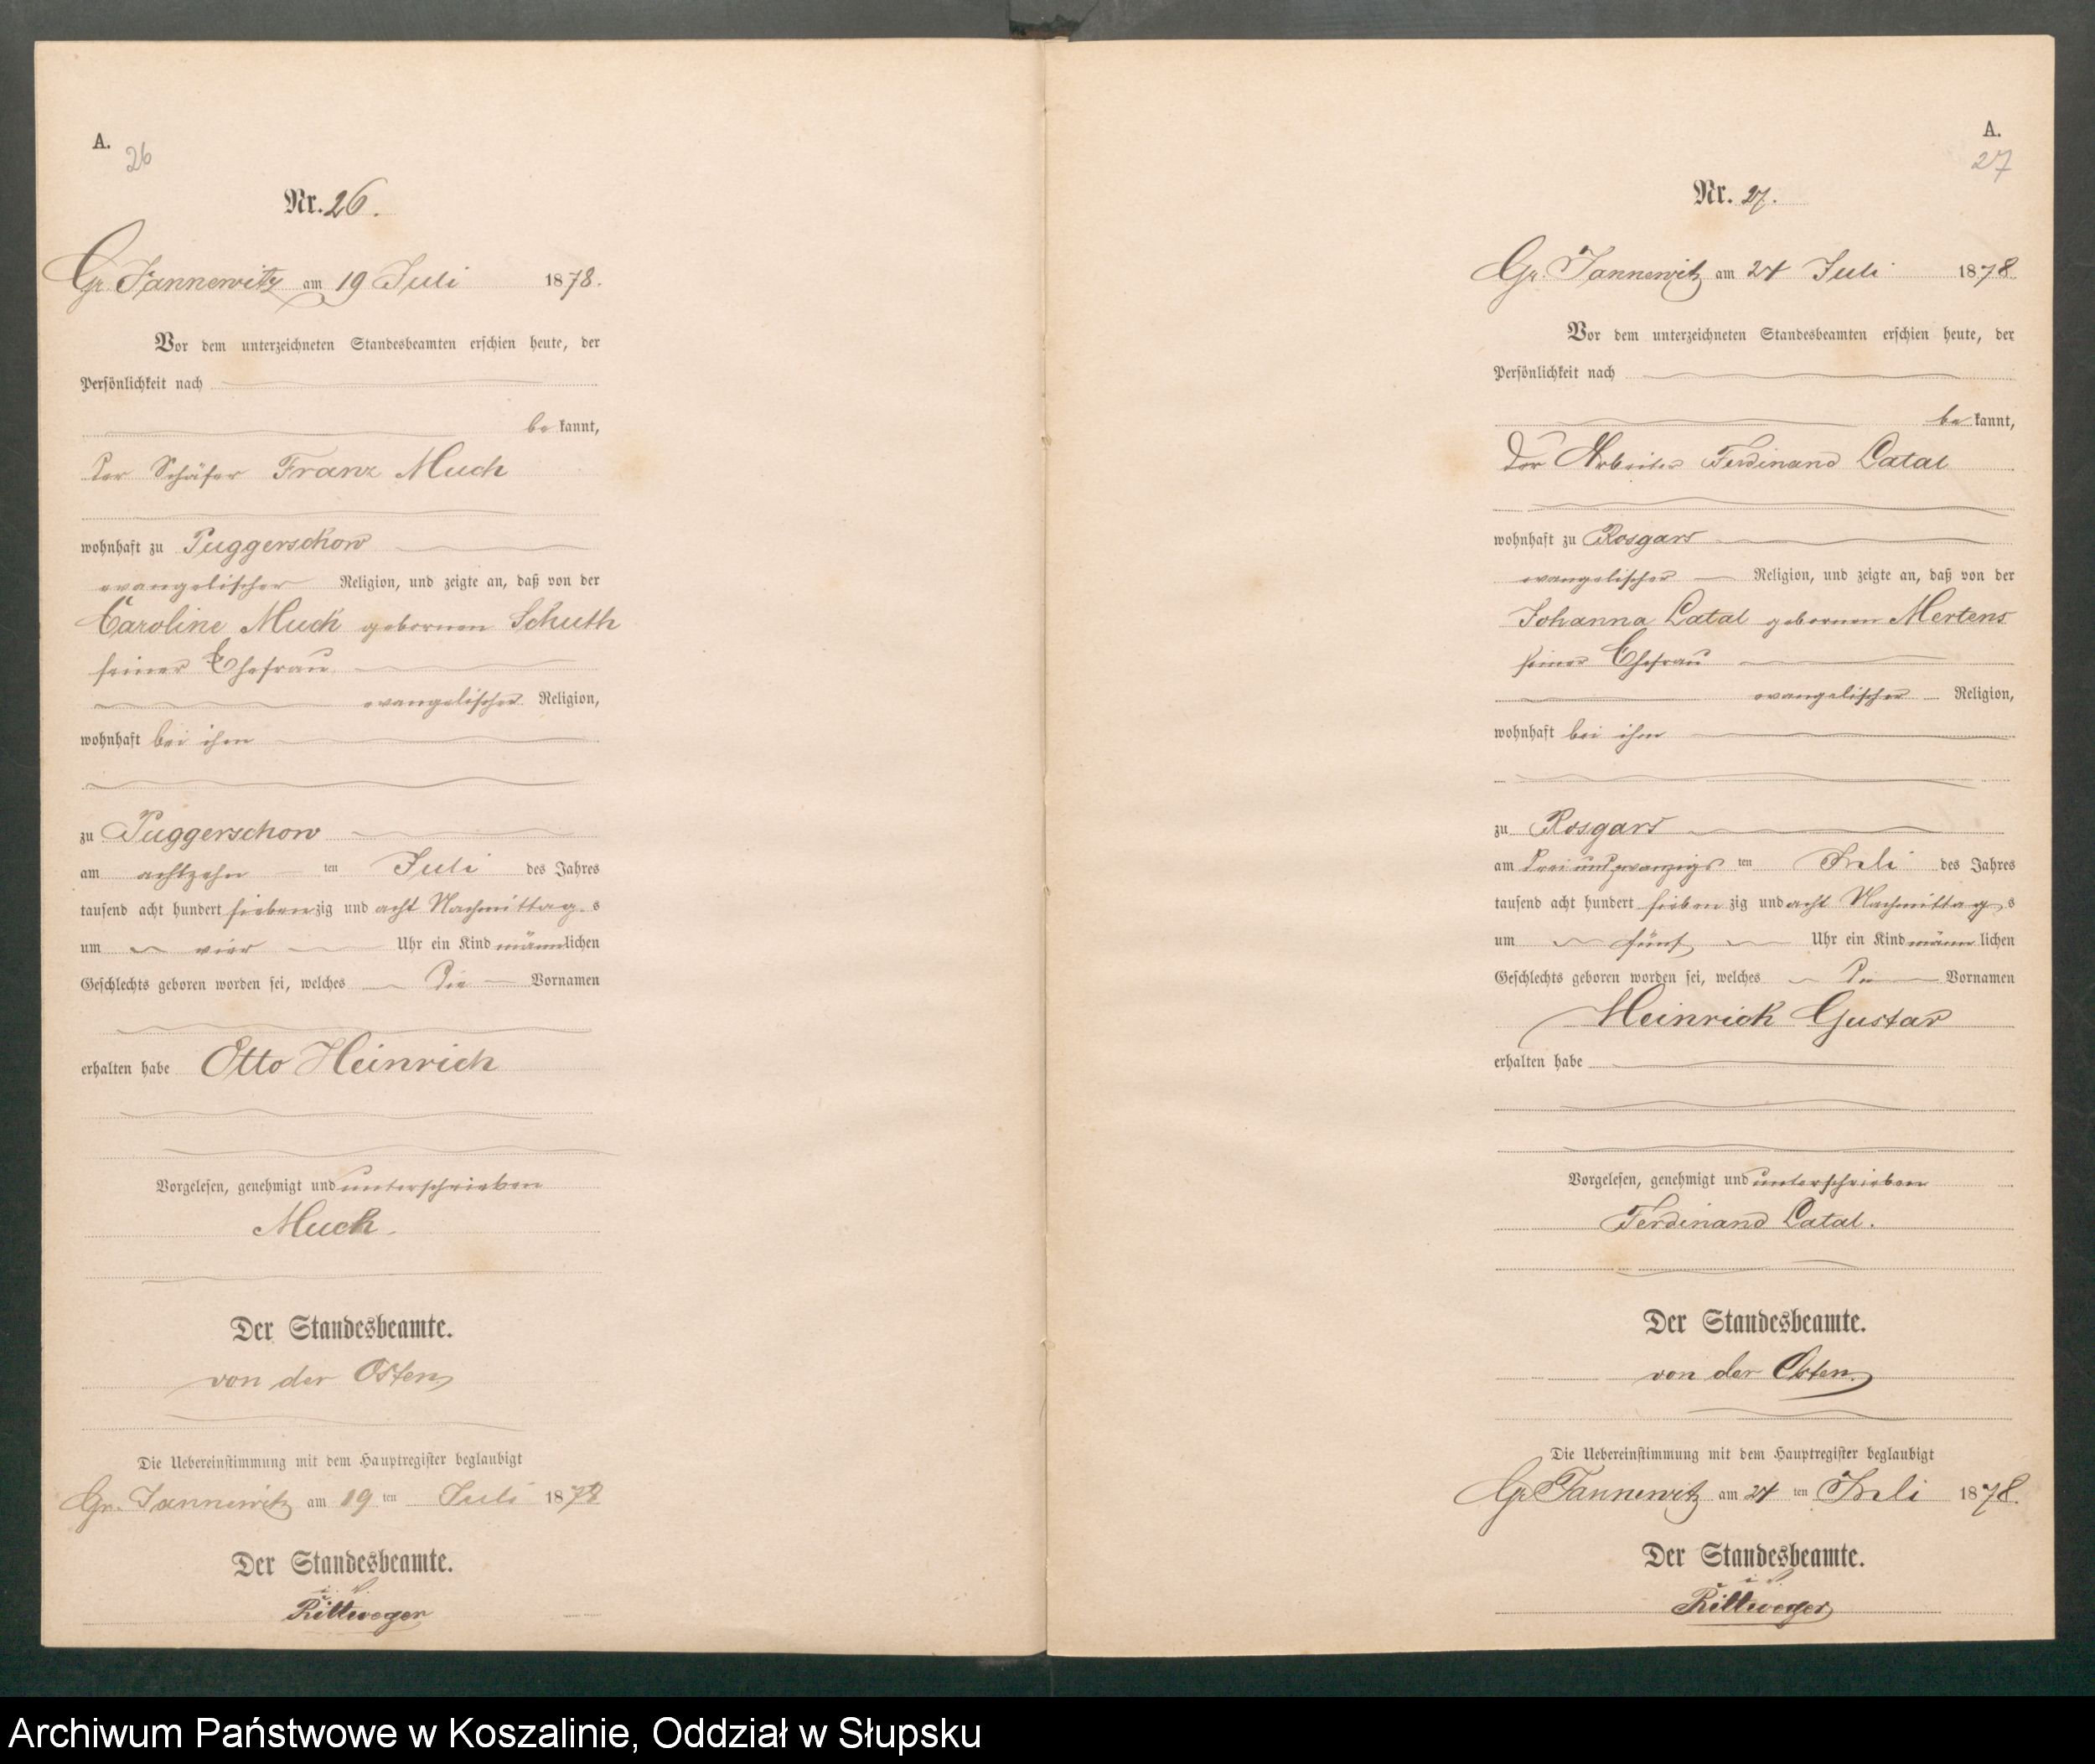 A.
26
Nr. 26.
Gr. Jannewitz am 19 Juli 1878.
Vor dem unterzeichneten Standesbeamten erschien heute, der
Persönlichkeit nach
be kannt,
der Schäfer Franz Much
wohnhaft zu Puggerschow
evangelischer Religion, und zeigte an, daß von der
Caroline Much gebornen Schuth
seiner Ehefrau
evangelischer Religion,
wohnhaft bei ihm
zu Puggerschow
am achtzehn ten Juli des Jahres
tausend acht hundert siebenzig und acht Nachmittag s
um vier Uhr ein Kind männlichen
Geschlechts geboren worden sei, welches die Vornamen
erhalten habe Otto Heinrich
Vorgelesen, genehmigt und unterschrieben
Much.
Der Standesbeamte.
von der Osten
Die Uebereinstimmung mit dem Hauptregister beglaubigt
Gr. Jannewitz am 19 ten Juli 1878
Der Standesbeamte.
i. V.
Rittweger
A.
27
Nr. 27.
Gr. Jannewitz am 24 Juli 1878.
Vor dem unterzeichneten Standesbeamten erschien heute, der
Persönlichkeit nach
be kannt,
der Arbeiter Ferdinand Latal
wohnhaft zu Rosgars
evangelischer Religion, und zeigte an, daß von der
Johanna Latal gebornen Mertens
seiner Ehefrau
evangelischer Religion,
wohnhaft bei ihm
zu Rosgars
am dreiundzwanzigs ten Juli des Jahres
tausend acht hundert sieben zig und acht Nachmittag s
um fünf Uhr ein Kind männ lichen
Geschlechts geboren worden sei, welches die Vornamen
Heinrich Gustav
erhalten habe
Vorgelesen, genehmigt und unterschrieben
Ferdinand Latal.
Der Standesbeamte.
von der Osten.
Die Uebereinstimmung mit dem Hauptregister beglaubigt
Gr. Jannewitz am 24 ten Juli 1878.
Der Standesbeamte.
i. V.
Rittweger
Archiwum Państwowe w Koszalinie, Oddział w Słupsku